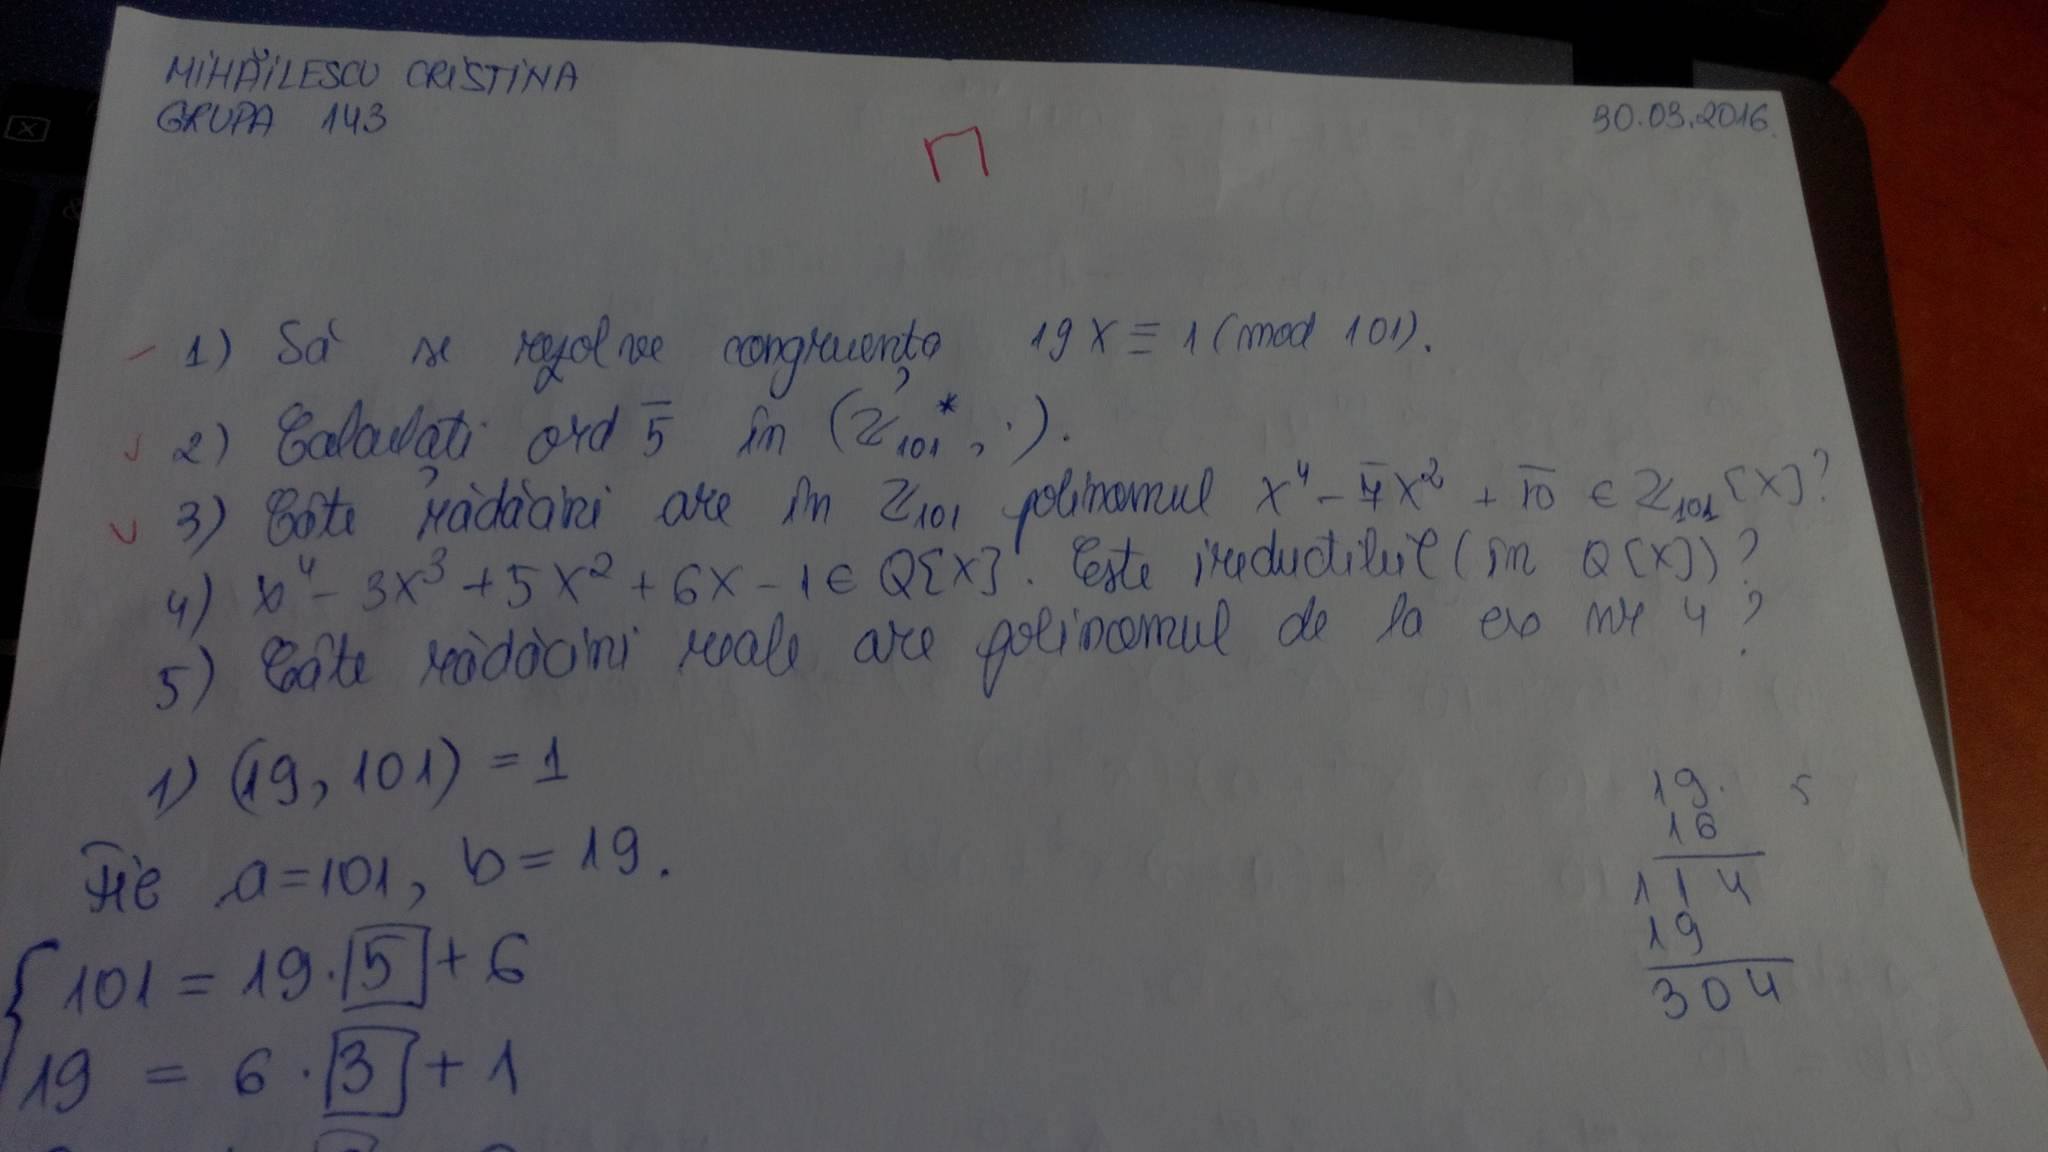 MIHĂILESCU CRISTINA
GRUPA 143
30.03.2016.
1) Să se rezolve congruența 19x ≡ 1 (mod 101).
2) Calculați ord 5̅ în (ℤ₁₀₁*, ·).
3) Câte rădăcini are în ℤ₁₀₁ polinomul x⁴ - 7̅x² + 1̅0̅ ∈ ℤ₁₀₁[x]?
4) x⁴ - 3x³ + 5x² + 6x - 1 ∈ Q[x]. Este ireductibil (în Q[x])?
5) Câte rădăcini reale are polinomul de la ex nr 4?
1) (19, 101) = 1
Fie a = 101, b = 19.
101 = 19 · 5 + 6
19 = 6 · 3 + 1
19 · 5
16
114
19
304